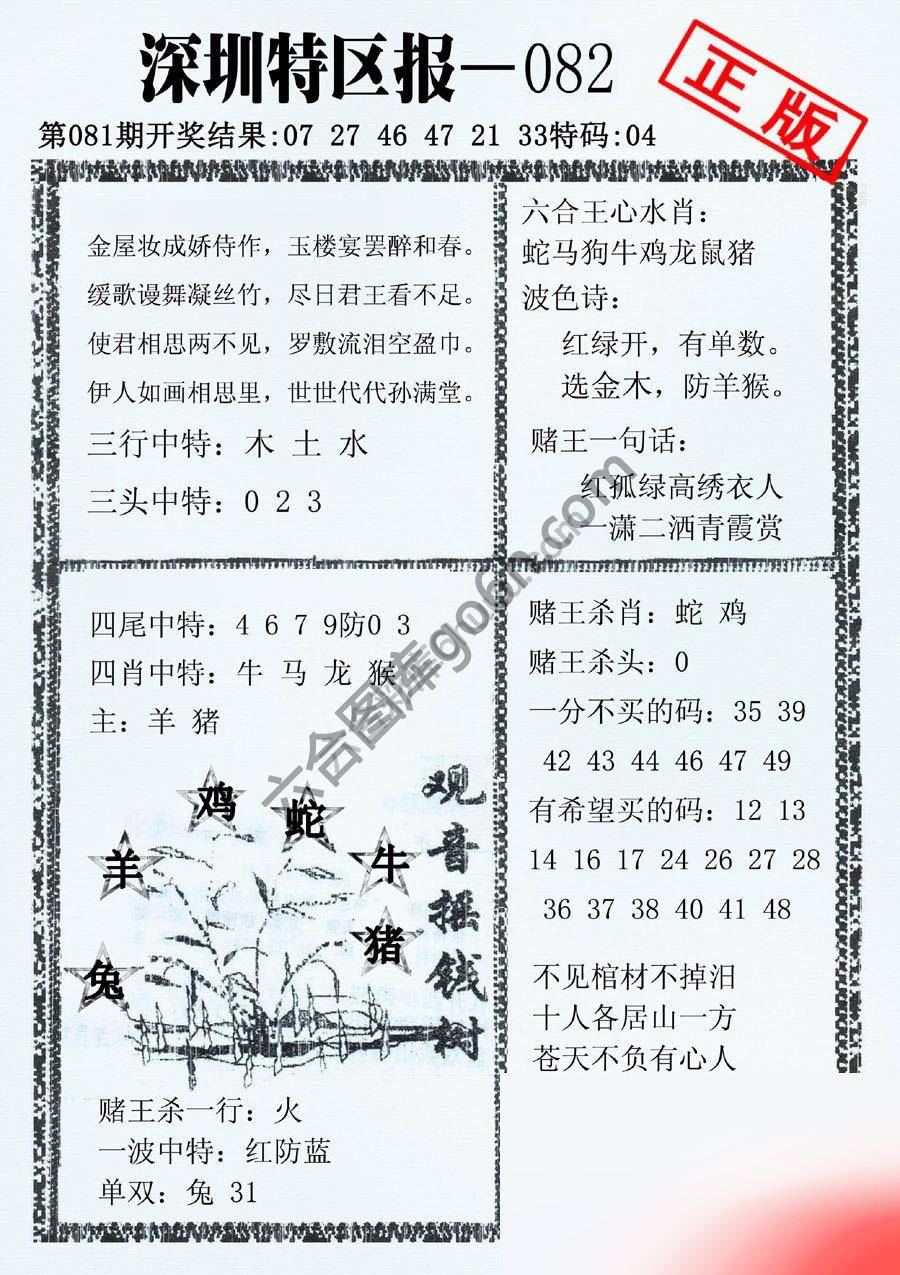 深圳特区报—082
正版
第081期开奖结果:07 27 46 47 21 33特码:04
金屋妆成娇侍作，玉楼宴罢醉和春。
缓歌谩舞凝丝竹，尽日君王看不足。
使君相思两不见，罗敷流泪空盈巾。
伊人如画相思里，世世代代孙满堂。
三行中特：木 土 水
三头中特：0 2 3
六合王心水肖：
蛇马狗牛鸡龙鼠猪
波色诗：
红绿开，有单数。
选金木，防羊猴。
赌王一句话：
红孤绿高绣衣人
一潇二洒青霞赏
四尾中特：4 6 7 9防0 3
四肖中特：牛 马 龙 猴
主：羊 猪
鸡
蛇
羊
牛
猪
兔
观音摇钱树
赌王杀一行：火
一波中特：红防蓝
单双：兔 31
赌王杀肖：蛇 鸡
赌王杀头：0
一分不买的码：35 39
42 43 44 46 47 49
有希望买的码：12 13
14 16 17 24 26 27 28
36 37 38 40 41 48
不见棺材不掉泪
十人各居山一方
苍天不负有心人
六合图库go6h.com